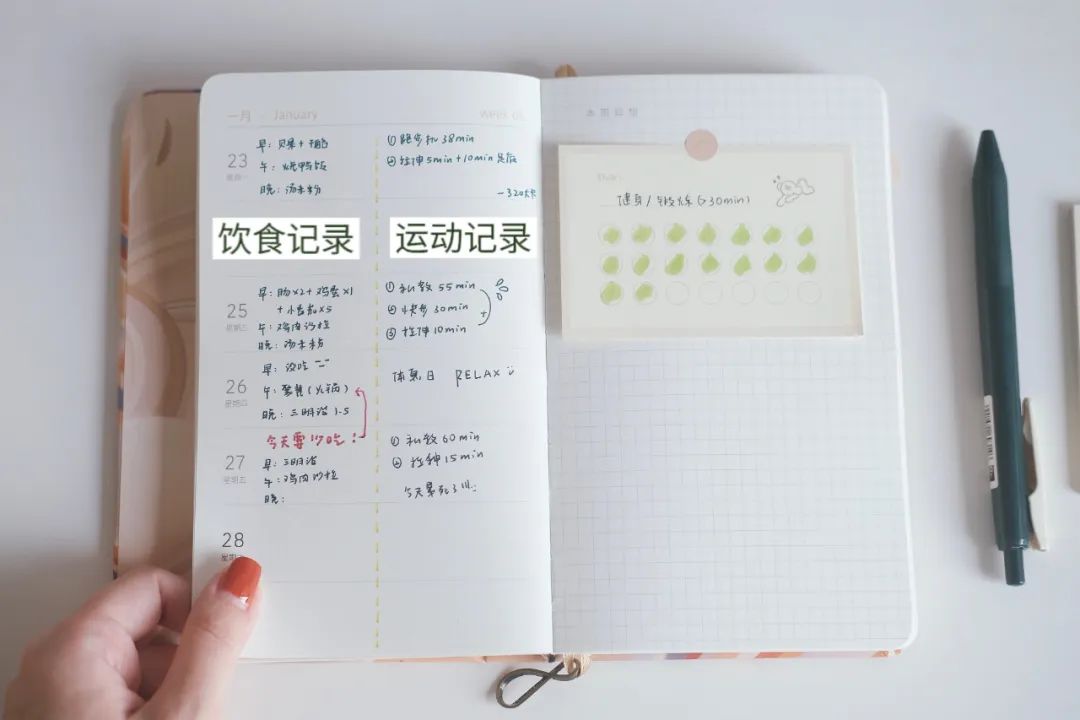 一月 January
WEEK 05
23
星期一
早: 贝果+干酪
午: 烧鸭饭
晚: 汤米粉
① 跑步机 38min
② 拉伸 5min+10min 足底
-320大卡
饮食记录
运动记录
25
星期三
早: 肠×2+鸡蛋×1
+小番茄×5
午: 鸡肉沙拉
晚: 汤米粉
① 私教 55min
② 快步 30min
③ 拉伸 10min
26
星期四
早: 没吃
午: 聚餐(火锅)
晚: 三明治 1.5
今天要少吃!
休息日 RELAX
27
星期五
早: 三明治
午: 鸡肉沙拉
晚:
① 私教 60min
② 拉伸 15min
今天累死了
28
本周计划
健身/锻炼(>30min)